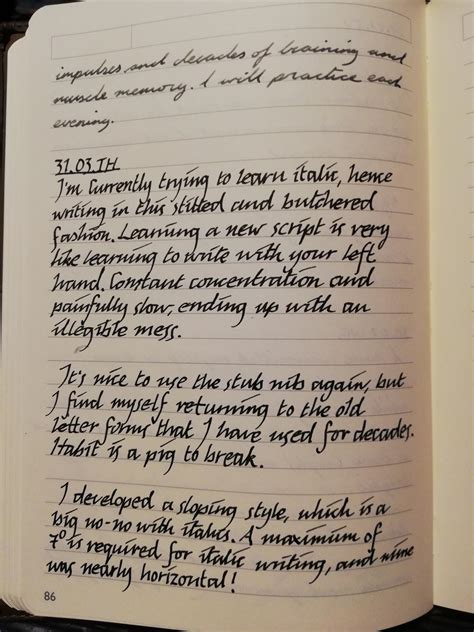 impulses and decades of training and
muscle memory. I will practice each
evening.
31.03.TH
I'm Currently trying to learn italic, hence
writing in this stilted and butchered
fashion. Learning a new script is very
like learning to write with your left
hand. Constant concentration and
painfully slow, ending up with an
illegible mess.
It's nice to use the stub nib again, but
I find myself returning to the old
letter forms that I have used for decades.
Habit is a pig to break.
I developed a sloping style, which is a
big no-no with italics. A maximum of
7° is required for italic writing, and mine
was nearly horizontal!
86